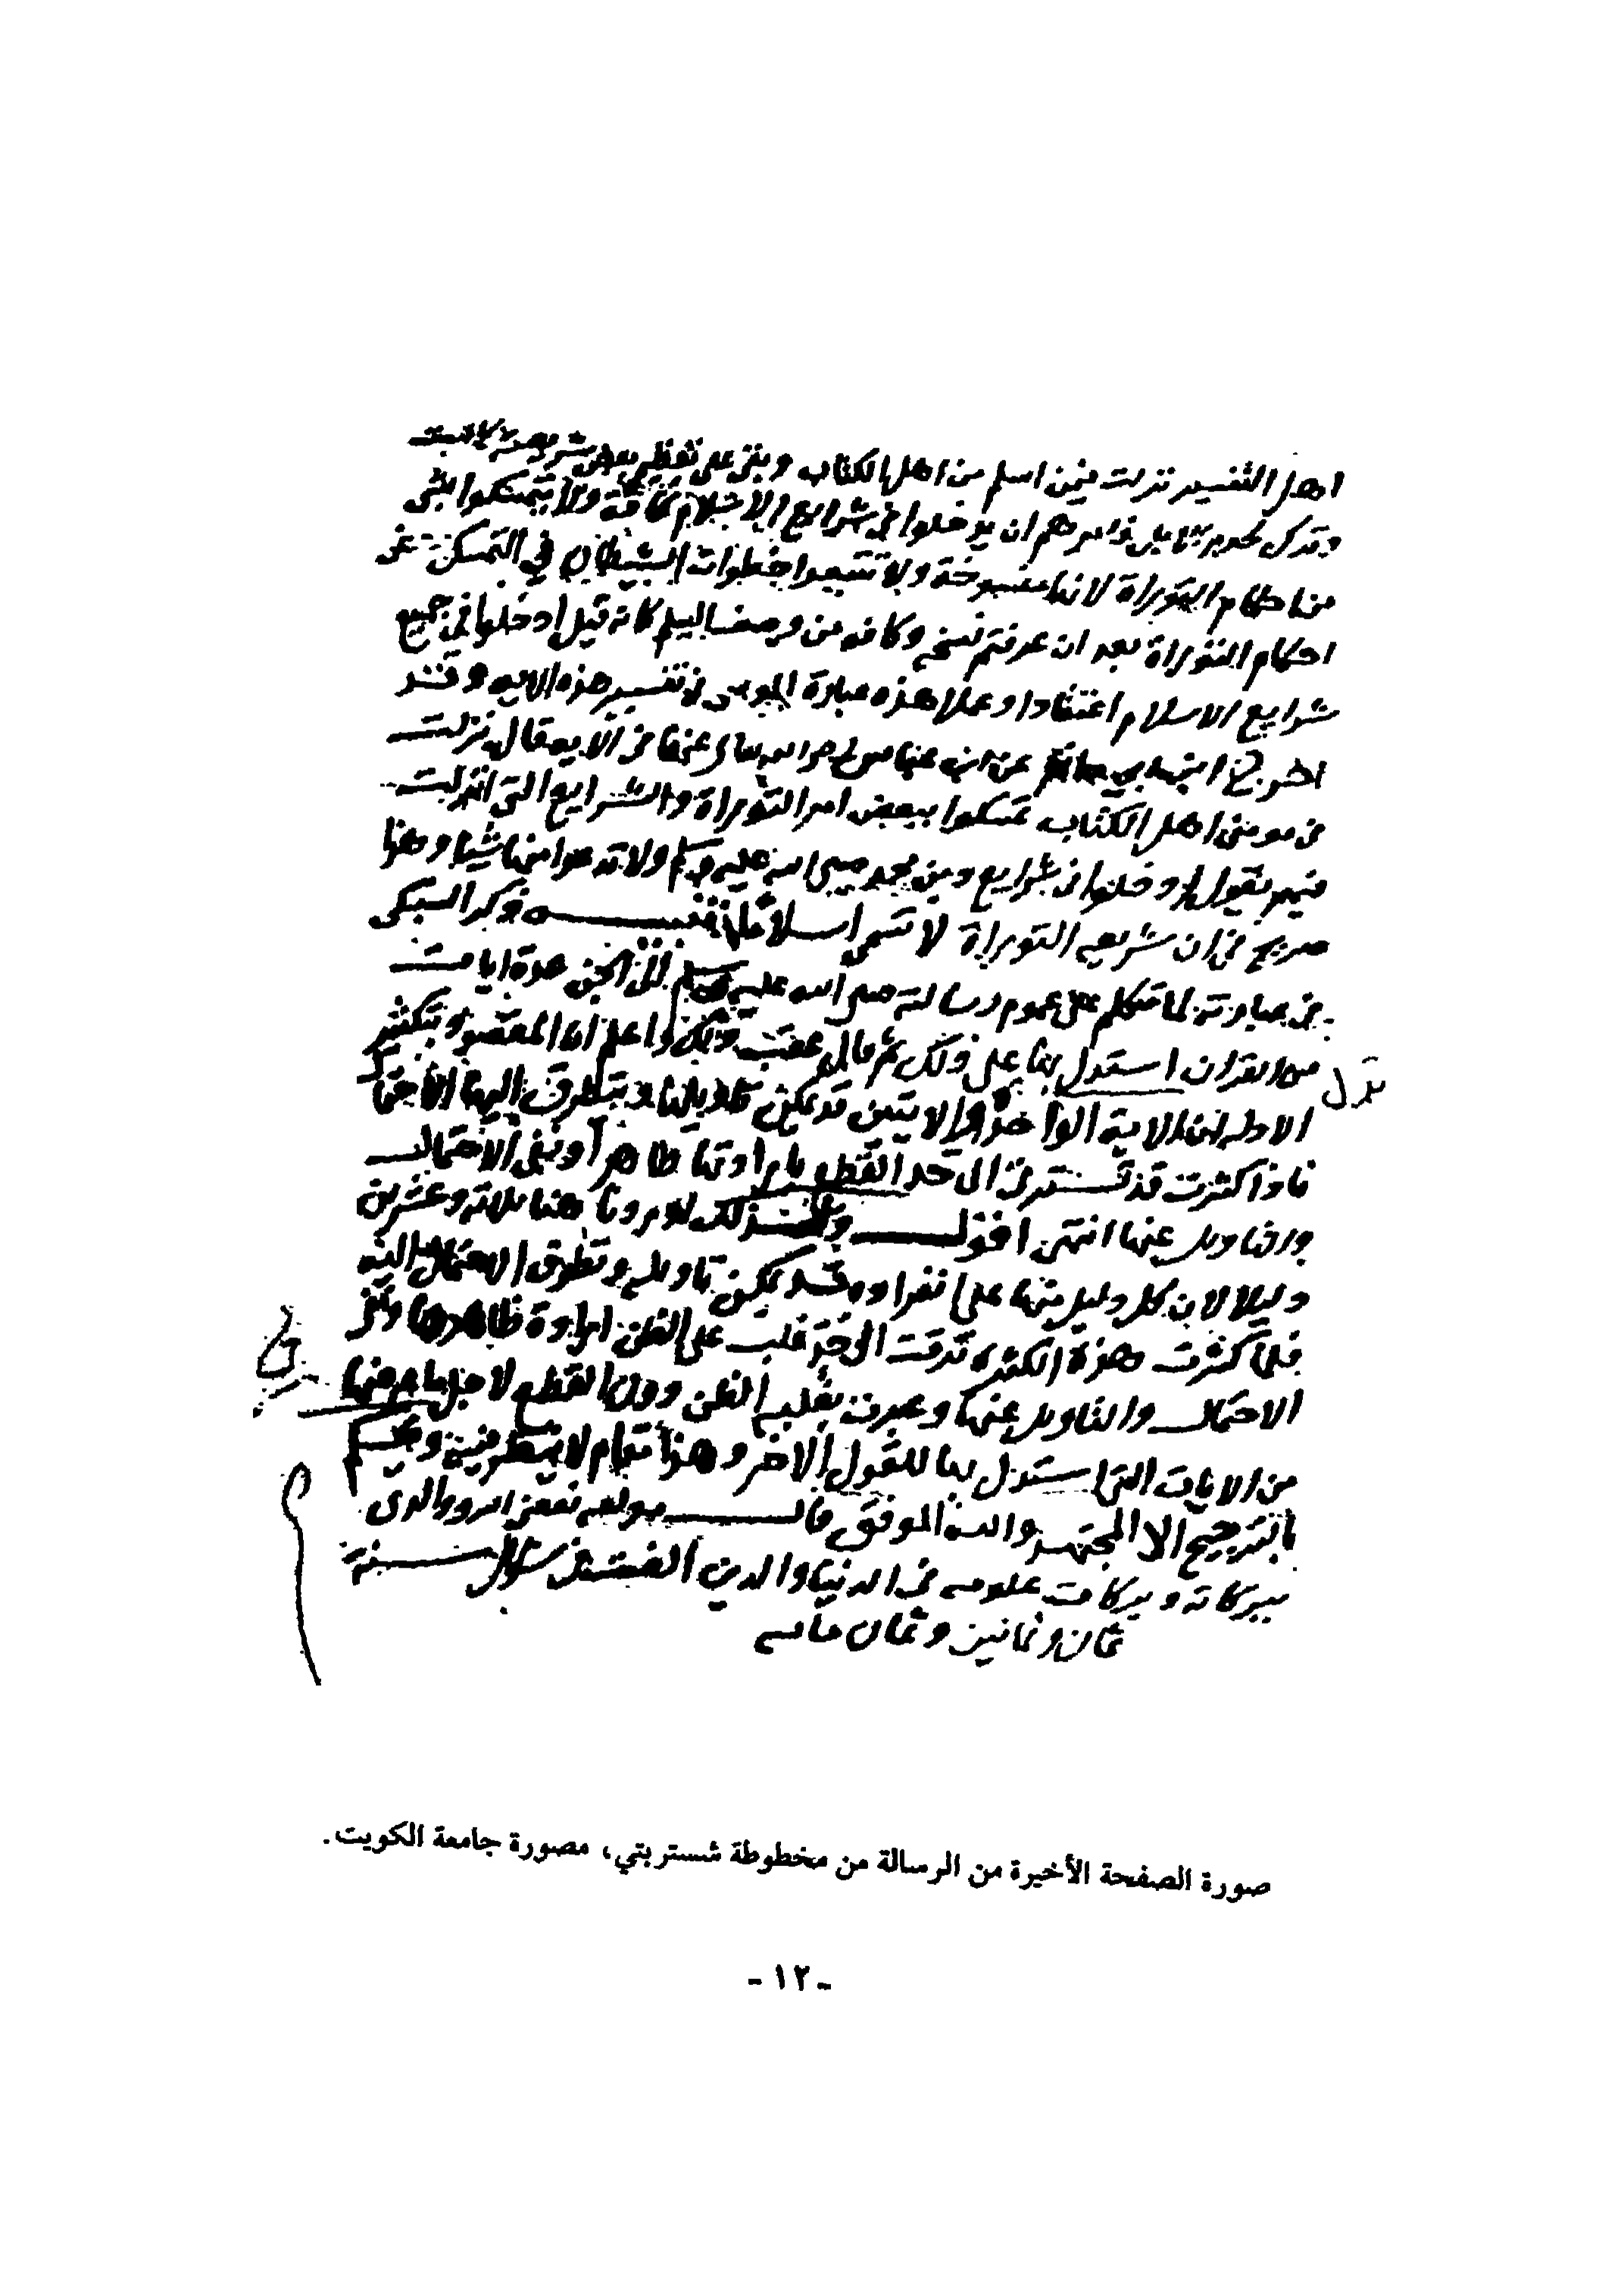 اهل التفسير نزلت فيمن اسلم من اهل الكتاب وبقى على تعظيم بعض شريعته كالسبت
وترك لحوم الابل فامرهم ان يدخلوا فى شرايع الاسلام كافة ولا يتمسكوا بشى
من احكام التوراة لانها منسوخة ولا تتبعوا خطوات الشيطان في التمسك
احكام التوراة بعد ان عرفتم نسخه وكافه من وصف السلم كانه قيل ادخلوا فى جميع
شرايع الاسلام اعتقادا وعملا هذه عبارة المرسى فى تفسير هذه الايه وقد
اخرج ابن ابي حاتم عن ابن عباس رضى الله تعالى عنهما فى الايه قال نزلت
فى مومنى اهل الكتاب تمسكوا ببعض امر التوراة والشرايع التى انزلت
فيهم يقول ادخلوا فى شرايع دين محمد صلى الله عليه وسلم ولا تدعوا منها شيا وهذا
صريح فى ان شريعه التوراة لا تسمى اسلاما تنبيه ذكر السبكى
فى عبارته لما تكلم على عموم رسالته صلى الله عليه وسلم للجن عدة ايات
من القران استدل بها على ذلك ثم قال عقب ذلك واعلم ان المقصود بتكثير
الادله ان الاية الواحدة والايتين قد يمكن تاويلها ويتطرق اليها الاحتمال
فاذا كثرت قد تترقى الى حد القطع بارادتها ظاهرا ونفى الاحتمال
والتاويل عنها انتهى اقول وكذلك اوردنا هنا ثلاثه وعشرين
دليلا لان كل دليل منها على انفراده قد يمكن تاويله وتطرق الاحتمال اليه
فلما كثرت هذه الكثره ترقت الى حد غلب على الظن ارادة ظاهرها ونفى
الاحتمال والتاويل عنها وعبرت بغلبه الظن دون القطع لاجل ما عارضها
من الايات التى استدل بها للقول الاخر وهذا مقام لا ينظر فيه ويحكم
بالترجيح الا المجتهد والله الموفق قال مولفه نفعنى الله والدى
ببركاته وبركات علومه فى الدنيا والدين الفته فى شوال سنة
ثمان وثمانين وثمان مايه
صورة الصفحة الأخيرة من الرسالة من مخطوطة شستربتي، مصورة جامعة الكويت.
- ١٢ -